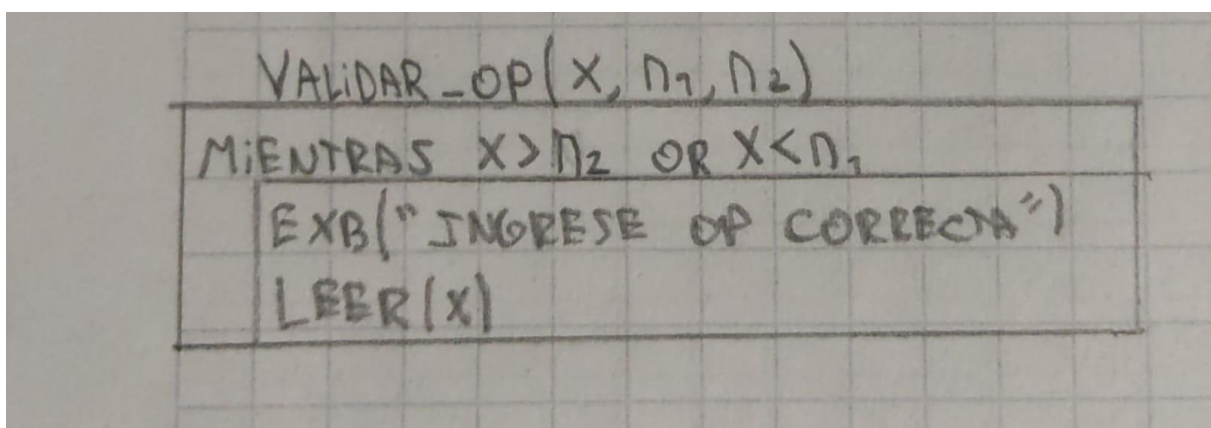 VALiDAR_OP(X, n1, n2)
MiENTRAS X>n2 OR X<n1
EXB("INGRESE OP CORRECTA")
LEER(X)